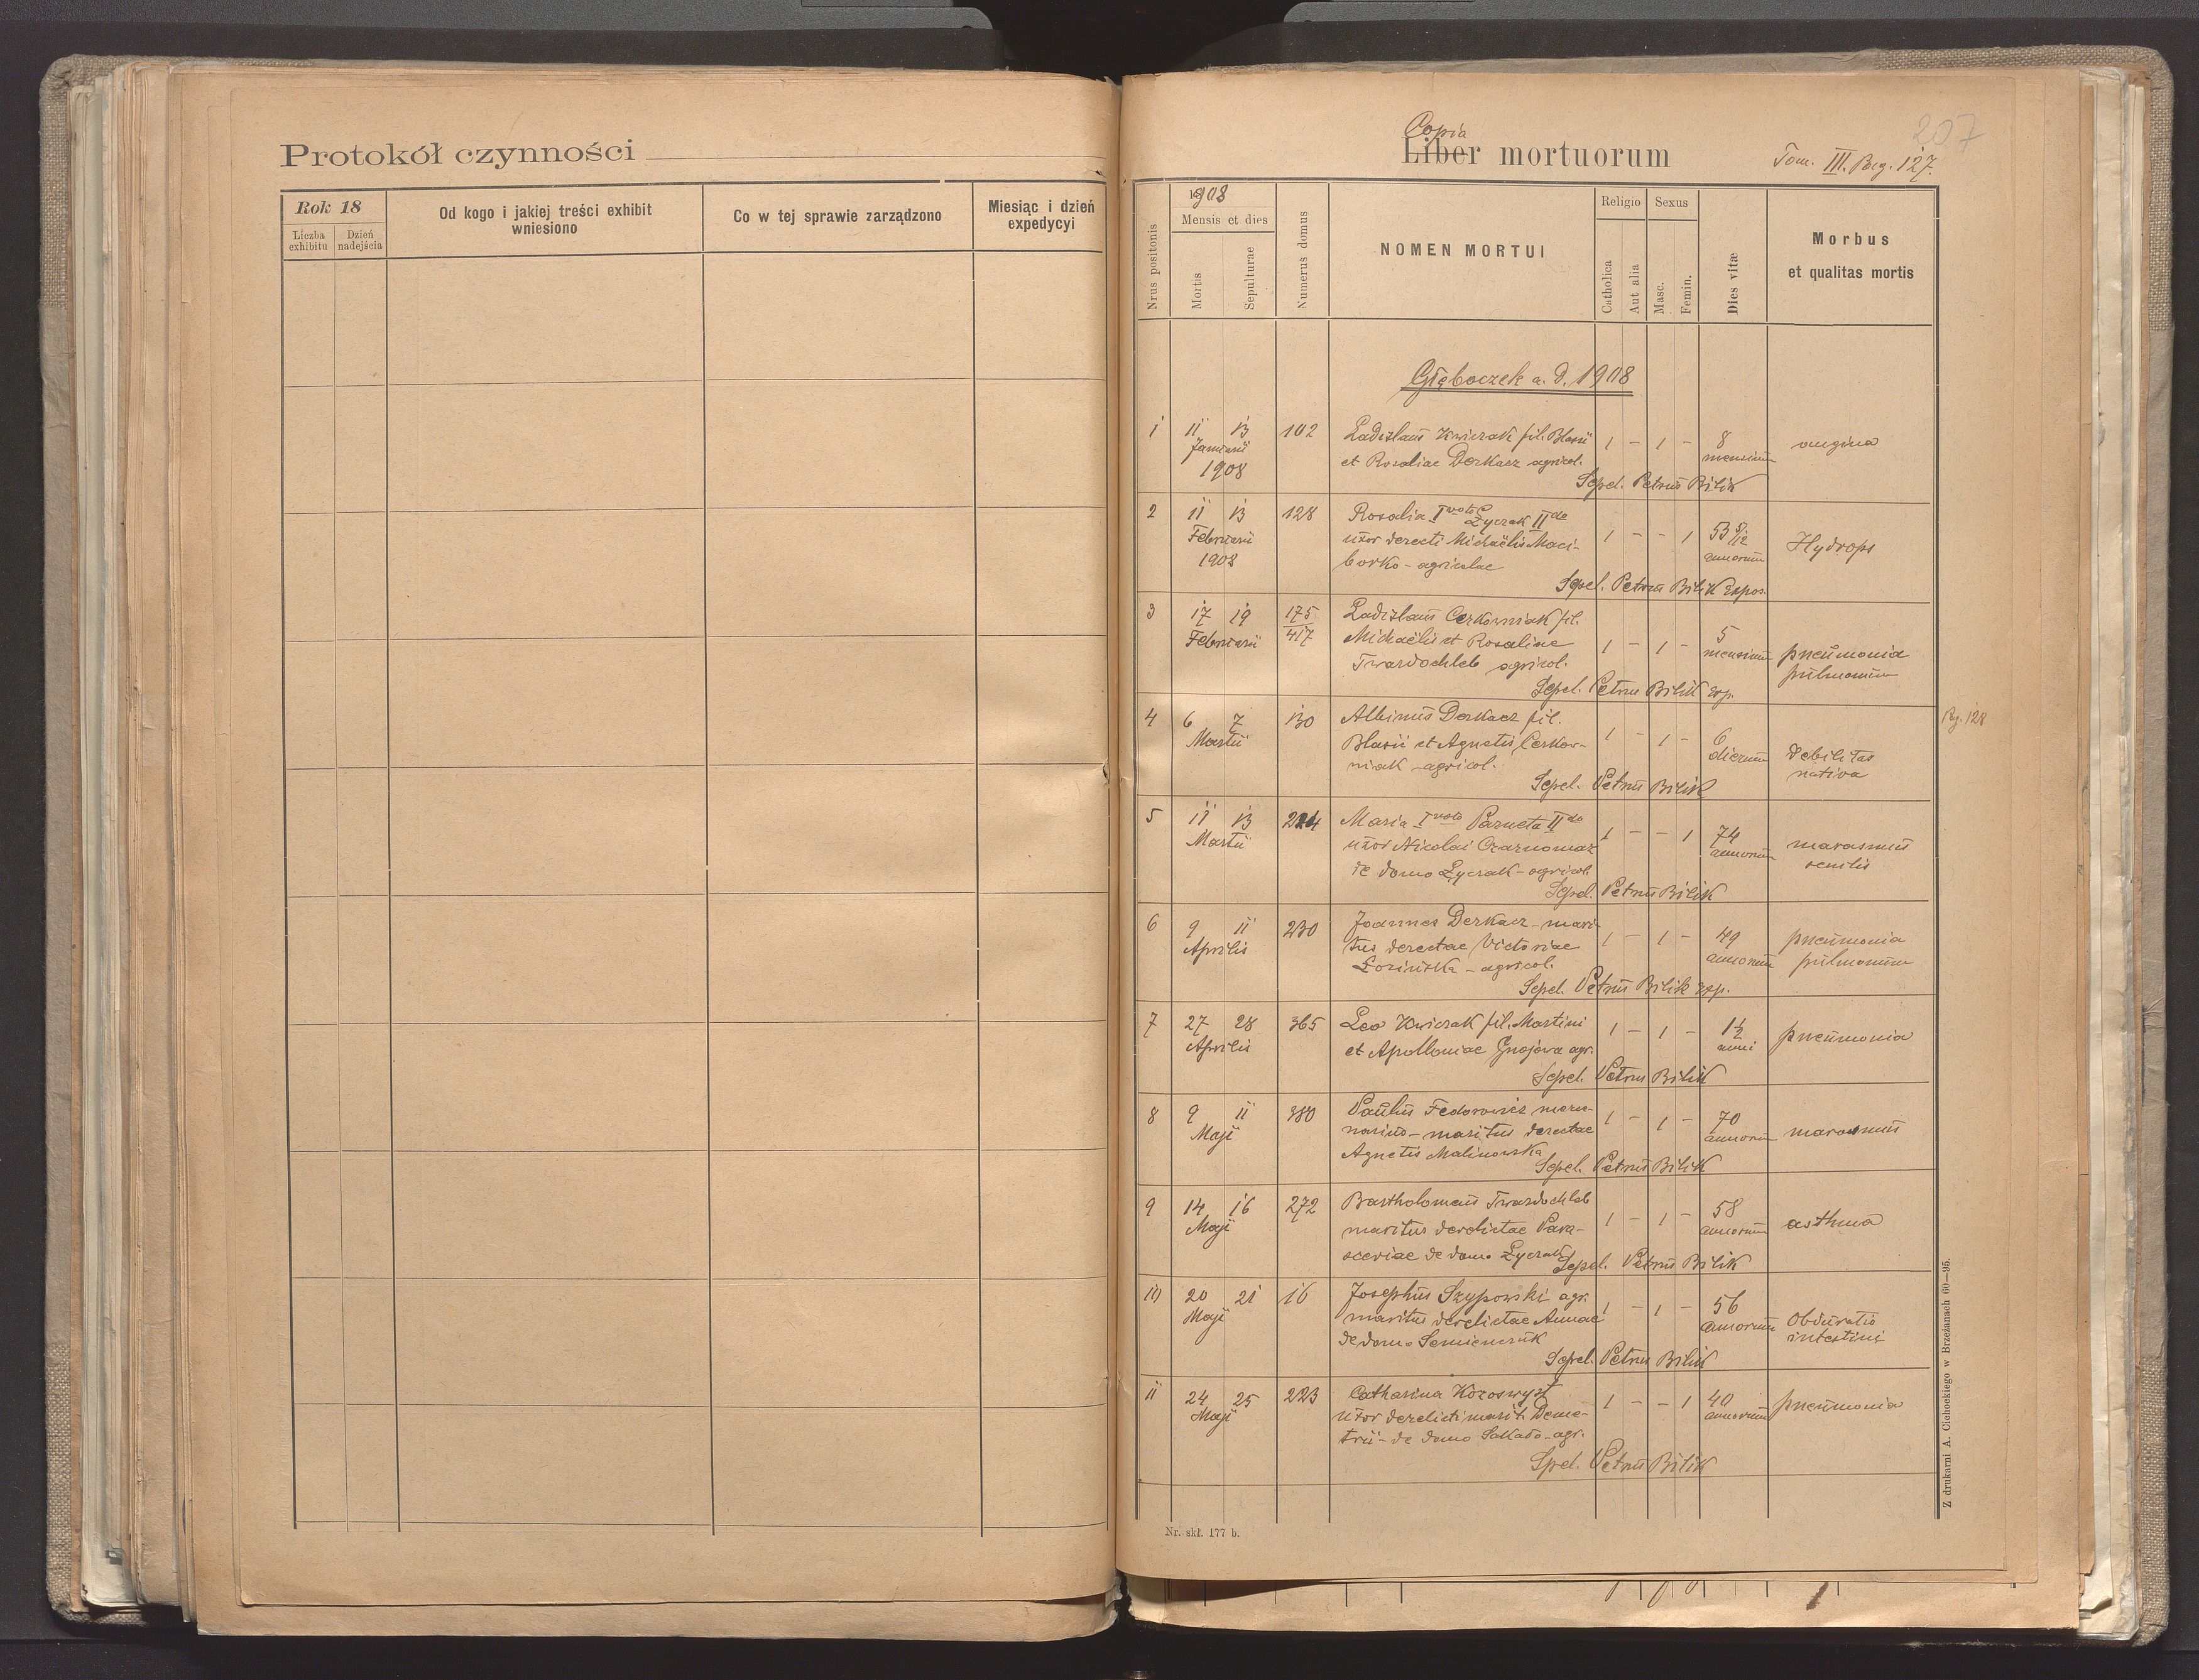 Protokół czynności
Rok 18
Liczba exhibitu
Dzień nadejścia
Od kogo i jakiej treści exhibit wniesiono
Co w tej sprawie zarządzono
Miesiąc i dzień expedycyi
207
Copia
Liber mortuorum
Tom. III. Pag. 127.
Nrus positonis
1908
Mensis et dies
Mortis
Sepulturae
Numerus domus
NOMEN MORTUI
Religio
Catholica
Aut alia
Sexus
Masc.
Femin.
Dies vitæ
Morbus
et qualitas mortis
Głęboczek a. d. 1908
1 11 13 102 Ladislaus Kwiczak fil. Blasii 1 - 1 - 8 angina
Januarii et Rosaliae Derkacz agricol. mensium
1908 Sepel. Petrus Bilik
2 11 13 128 Rosalia I voto Łyczak II do 1 - - 1 53 9/12 Hydrops
Februarii uxor derecti Michaëlis Maci- annorum
1908 borko - agricolae
Sepel. Petrus Bilik Expos.
3 17 19 175/417 Ladislaus Cerkowniak fil. 1 - 1 - 5 pneumonia
Februarii Michaëlis et Rosaliae mensium pulmonum
Twardochleb agricol.
Sepel. Petrus Bilik exp.
4 6 7 130 Albinus Derkacz fil. 1 - 1 - 6 debilitas
Martii Blasii et Agnetis Cerkow- dierum nativa
niak - agricol.
Sepel. Petrus Bilik
Pg. 128
5 11 13 224 Maria I voto Parneta II do 1 - - 1 74 marasmus
Martii uxor Nicolai Czarnomaz annorum senilis
de domo Łyczak - agricol.
Sepel. Petrus Bilik
6 9 11 230 Joannes Derkacz - mari- 1 - 1 - 49 pneumonia
Aprilis tus derectae Victoriae annorum pulmonum
Łozińska - agricol.
Sepel. Petrus Bilik exp.
7 27 28 365 Leo Kwiczak fil. Martini 1 - 1 - 1 1/2 pneumonia
Aprilis et Apolloniae Gnojowa agr. anni
Sepel. Petrus Bilik
8 9 11 380 Paulus Fedorowicz merce- 1 - 1 - 70 marasmus
Maji narius - maritus derectae annorum
Agnetis Malinowska
Sepel. Petrus Bilik
9 14 16 272 Bartholomeus Twardochleb 1 - 1 - 58 asthma
Maji maritus derelictae Para- annorum
sceviae de domo Łyczak
Sepel. Petrus Bilik
10 20 21 16 Josephus Szypowski agr. 1 - 1 - 56 Obduratio
Maji maritus derelictae Annae annorum intestini
de domo Semienczuk
Sepel. Petrus Bilik
11 24 25 223 Catharina Kozoswyst 1 - - 1 40 pneumonia
Maji uxor derelicti marit. Deme- annorum
trii - de domo Sakado - agr.
Sepel. Petrus Bilik
Nr. skł. 177 b.
Z drukarni A. Cichockiego w Brzeżanach 60—95.